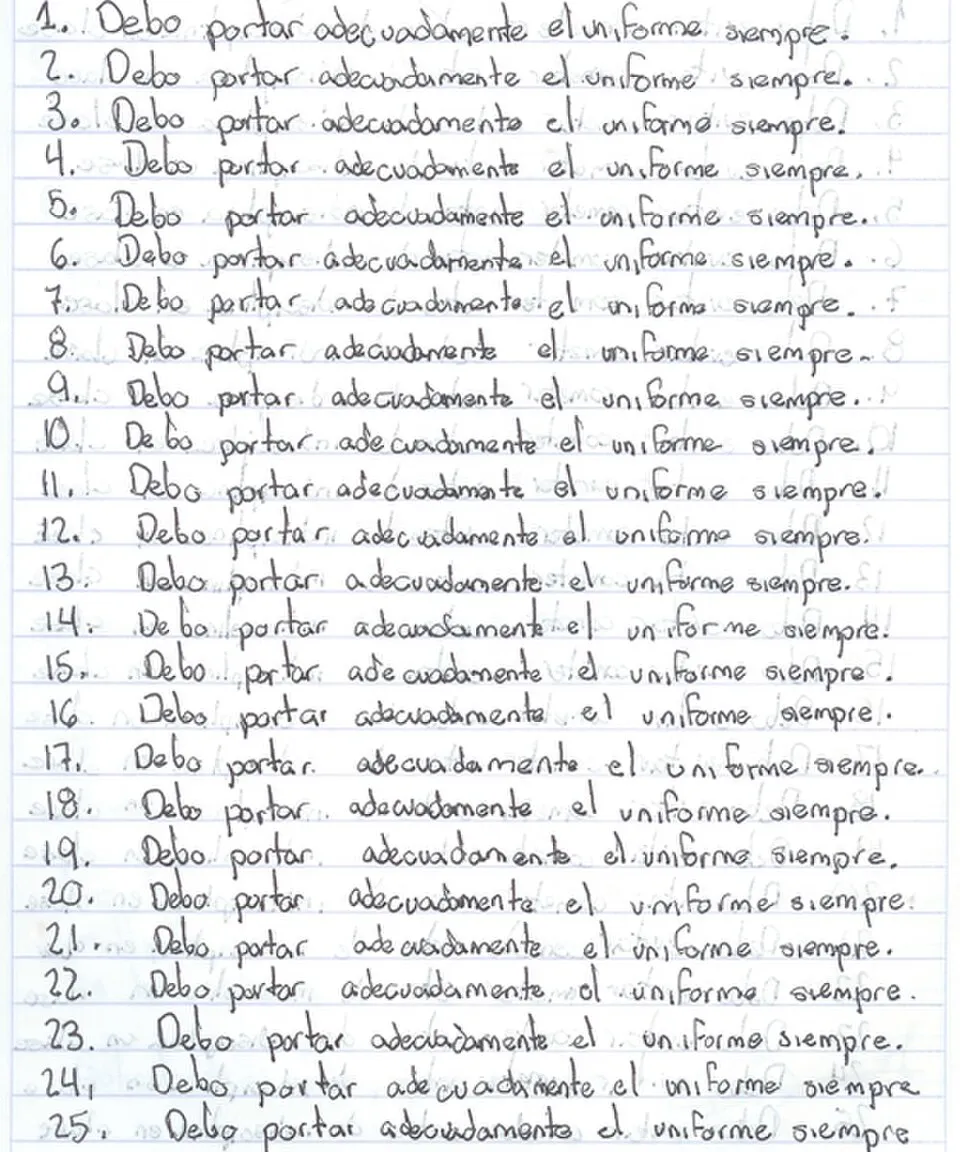 1. Debo portar adecuadamente el uniforme siempre.
2. Debo portar adecuadamente el uniforme siempre.
3. Debo portar adecuadamente el uniforme siempre.
4. Debo portar adecuadamente el uniforme siempre.
5. Debo portar adecuadamente el uniforme siempre.
6. Debo portar adecuadamente el uniforme siempre.
7. Debo portar adecuadamente el uniforme siempre.
8. Debo portar adecuadamente el uniforme siempre.
9. Debo portar adecuadamente el uniforme siempre.
10. Debo portar adecuadamente el uniforme siempre.
11. Debo portar adecuadamente el uniforme siempre.
12. Debo portar adecuadamente el uniforme siempre.
13. Debo portar adecuadamente el uniforme siempre.
14. Debo portar adecuadamente el uniforme siempre.
15. Debo portar adecuadamente el uniforme siempre.
16 Debo portar adecuadamente el uniforme siempre.
17. Debo portar adecuadamente el uniforme siempre.
18. Debo portar adecuadamente el uniforme siempre.
19. Debo portar adecuadamente el uniforme siempre.
20. Debo portar adecuadamente el uniforme siempre.
21. Debo portar adecuadamente el uniforme siempre.
22. Debo portar adecuadamente el uniforme siempre.
23. Debo portar adecuadamente el uniforme siempre.
24, Debo portar adecuadamente el uniforme siempre
25. Debo portar adecuadamente el uniforme siempre